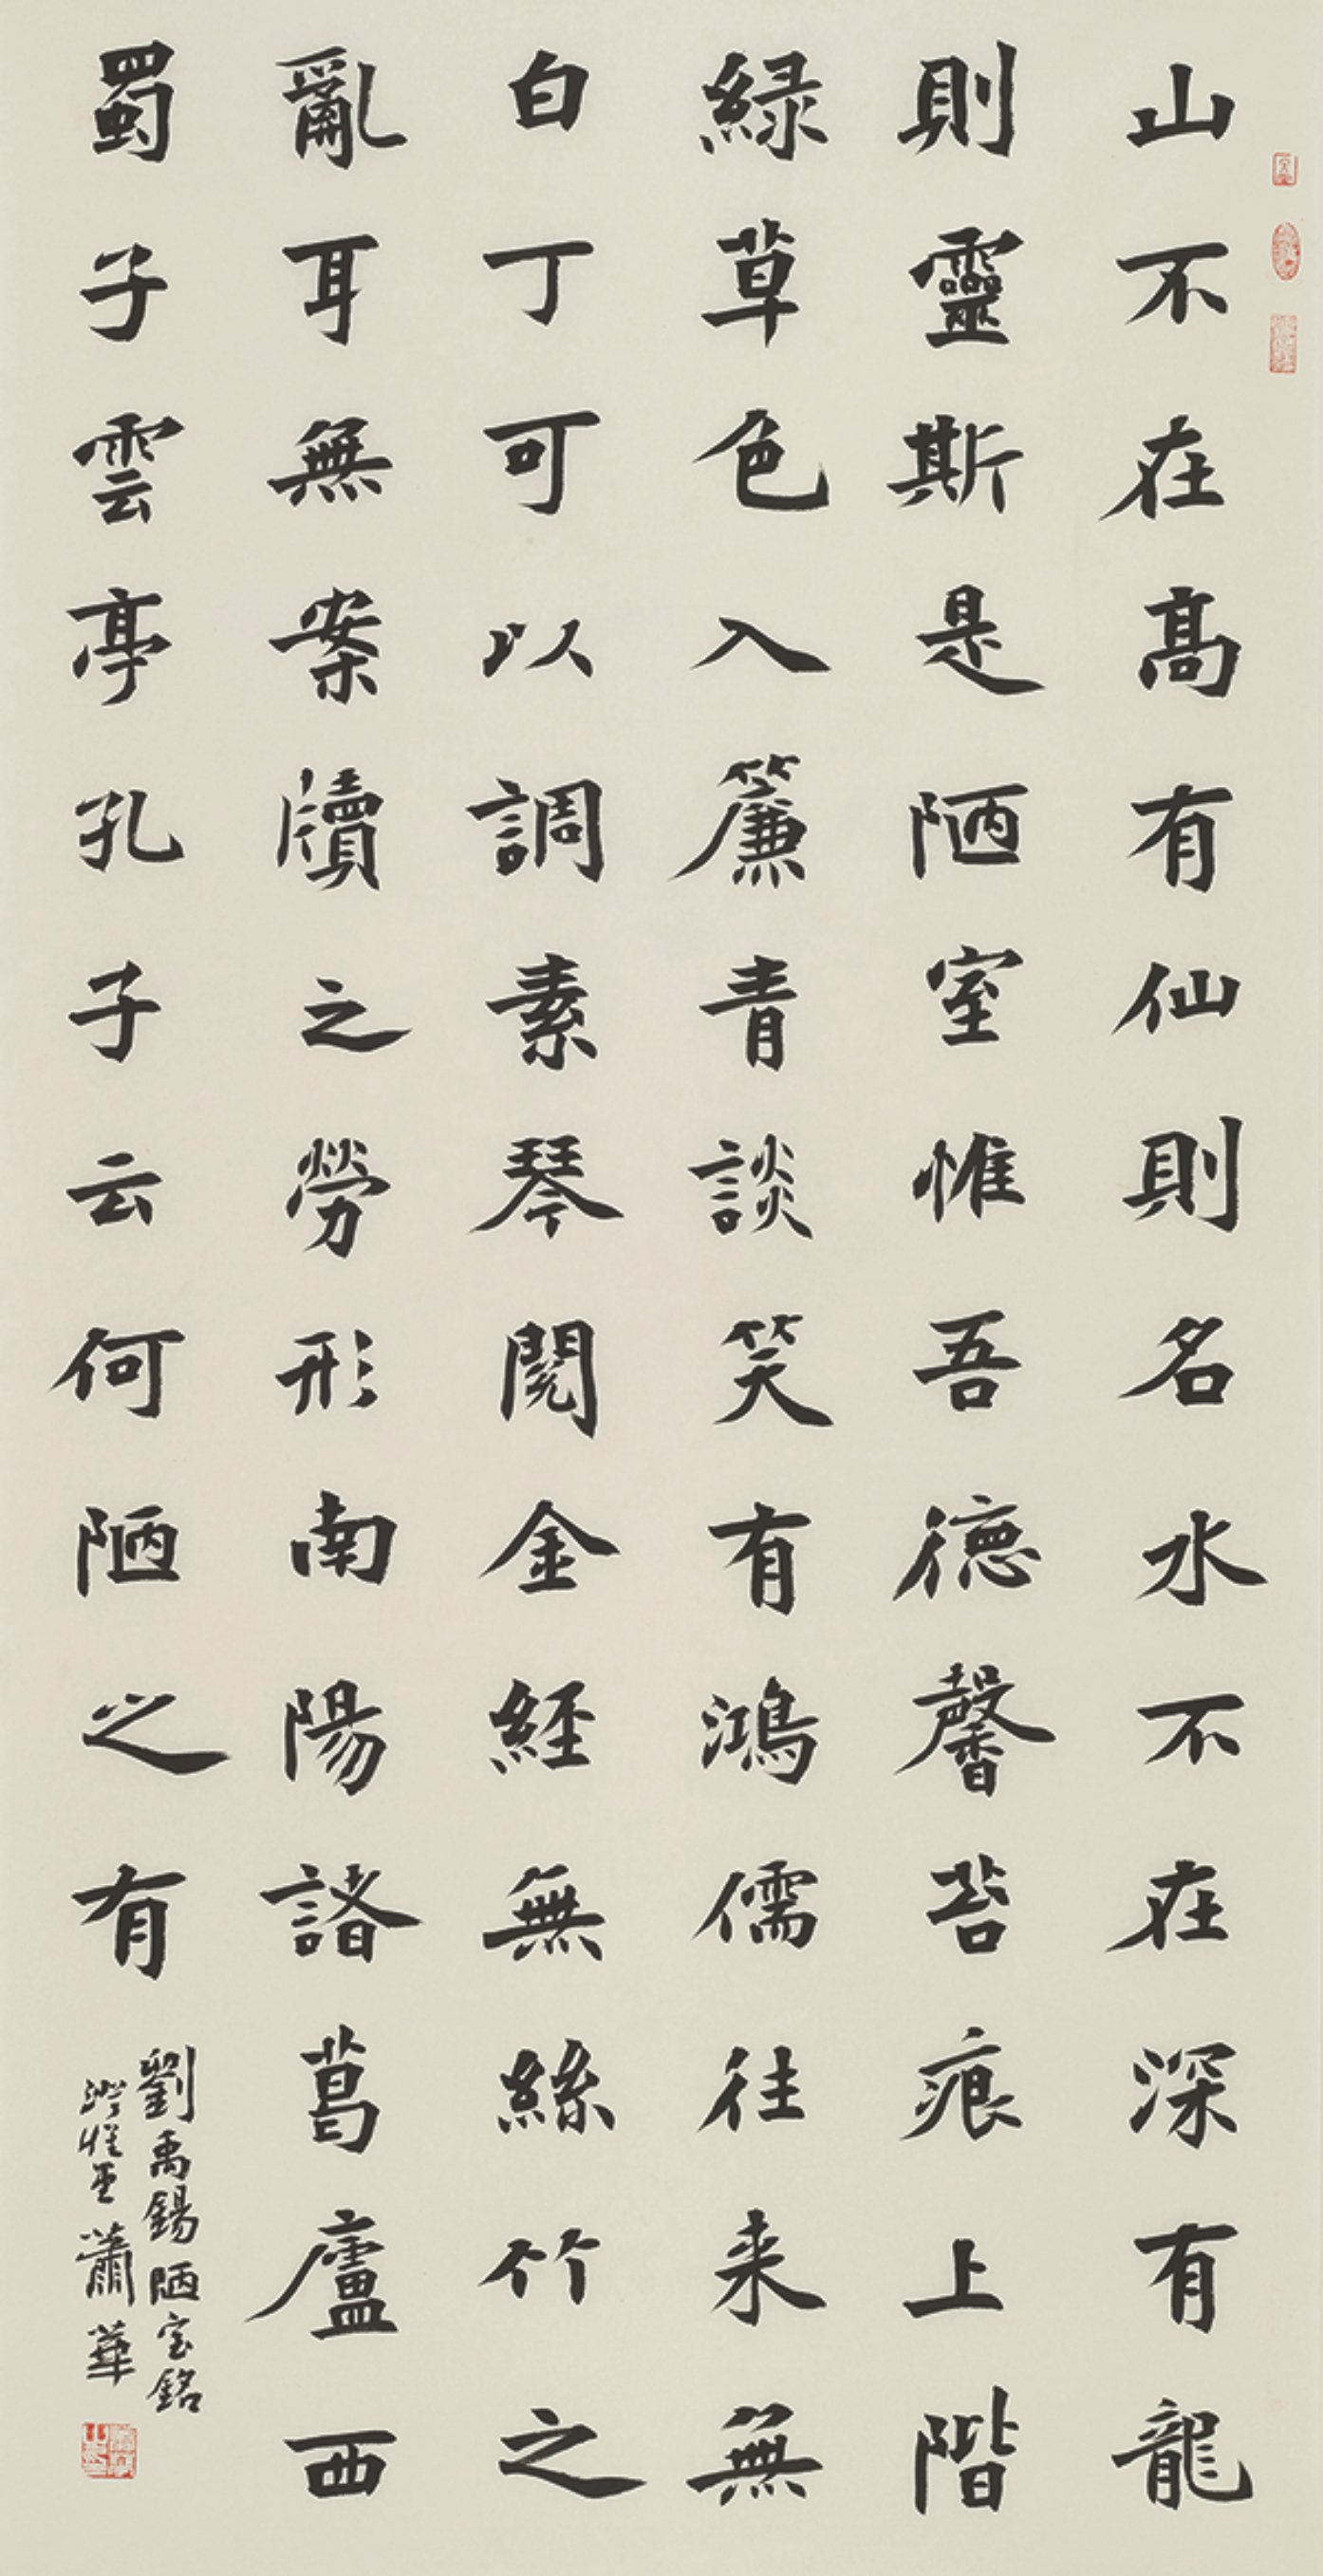 山不在高有仙則名水不在深有龍
則靈斯是陋室惟吾德馨苔痕上階
緑草色入簾青談笑有鴻儒往来無
白丁可以調素琴閱金經無絲竹之
亂耳無案牘之勞形南陽諸葛廬西
蜀子雲亭孔子云何陋之有
劉禹錫陋室銘
蕭華